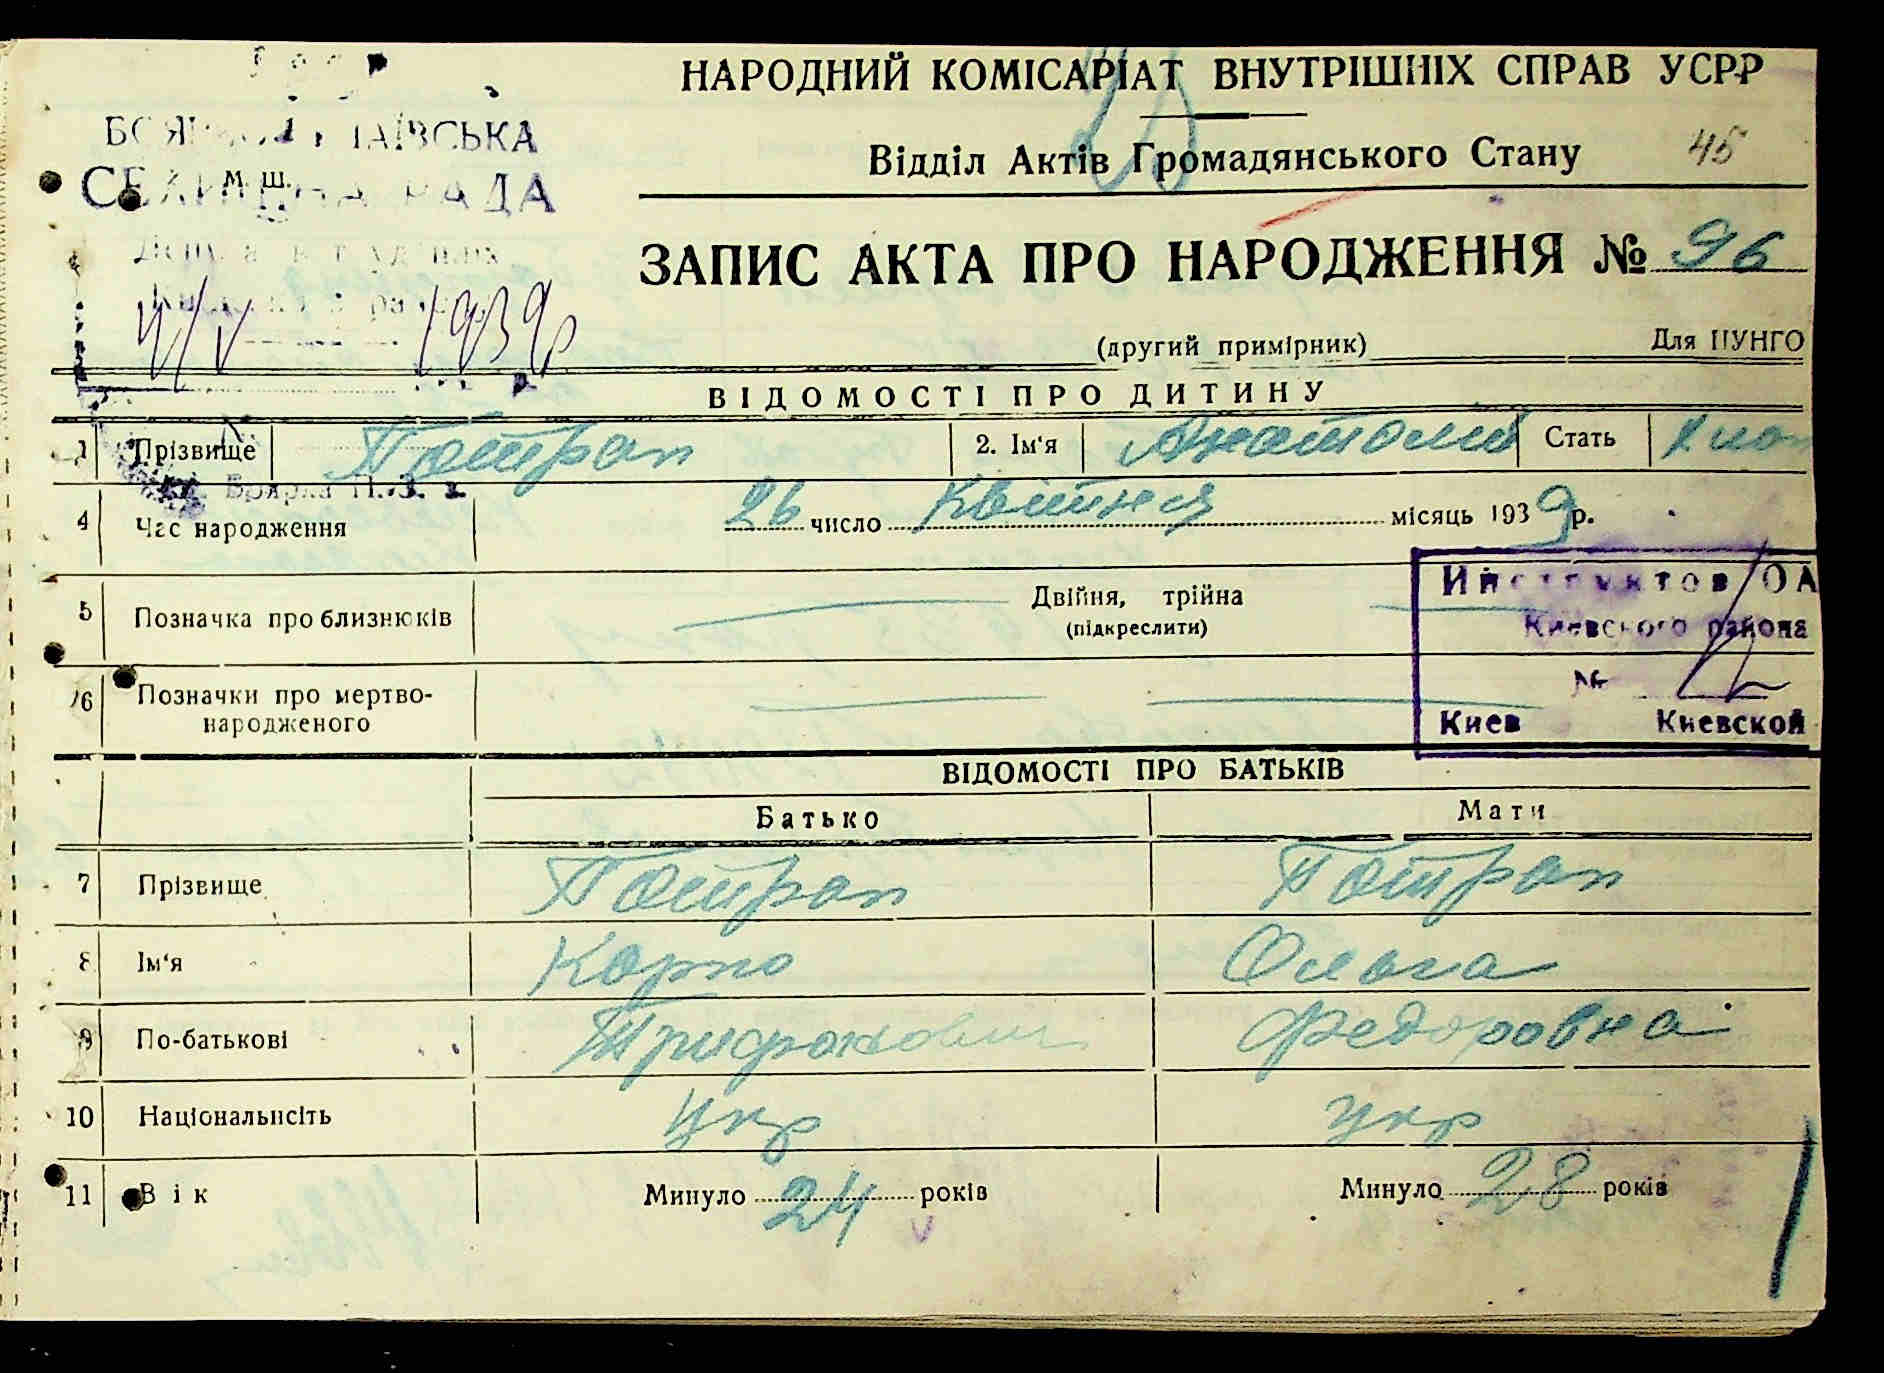 НАРОДНИЙ КОМІСАРІАТ ВНУТРІШНІХ СПРАВ УСРР
Відділ Актів Громадянського Стану 45
РАДА
м. ш.
ЗАПИС АКТА ПРО НАРОДЖЕННЯ № 96
1939р
(другий примірник) Для ЦУНГО
ВІДОМОСТІ ПРО ДИТИНУ
1 Прізвище Потрап 2. Ім'я Анатолій Стать Хлоп
Боярка П.-З. з.
4 Час народження 26 число Квітня місяць 1939 р.
5 Позначка про близнюків Двійня, трійна
(підкреслити)
Киевского района
6 Позначки про мертво-
народженого
№
Киев Киевской
ВІДОМОСТІ ПРО БАТЬКІВ
Батько Мати
7 Прізвище Потрап Потрап
8 Ім'я Карпо Ольга
9 По-батькові Трифонович Федоровна
10 Національність Укр Укр
11 Вік Минуло 24 років Минуло 28 років